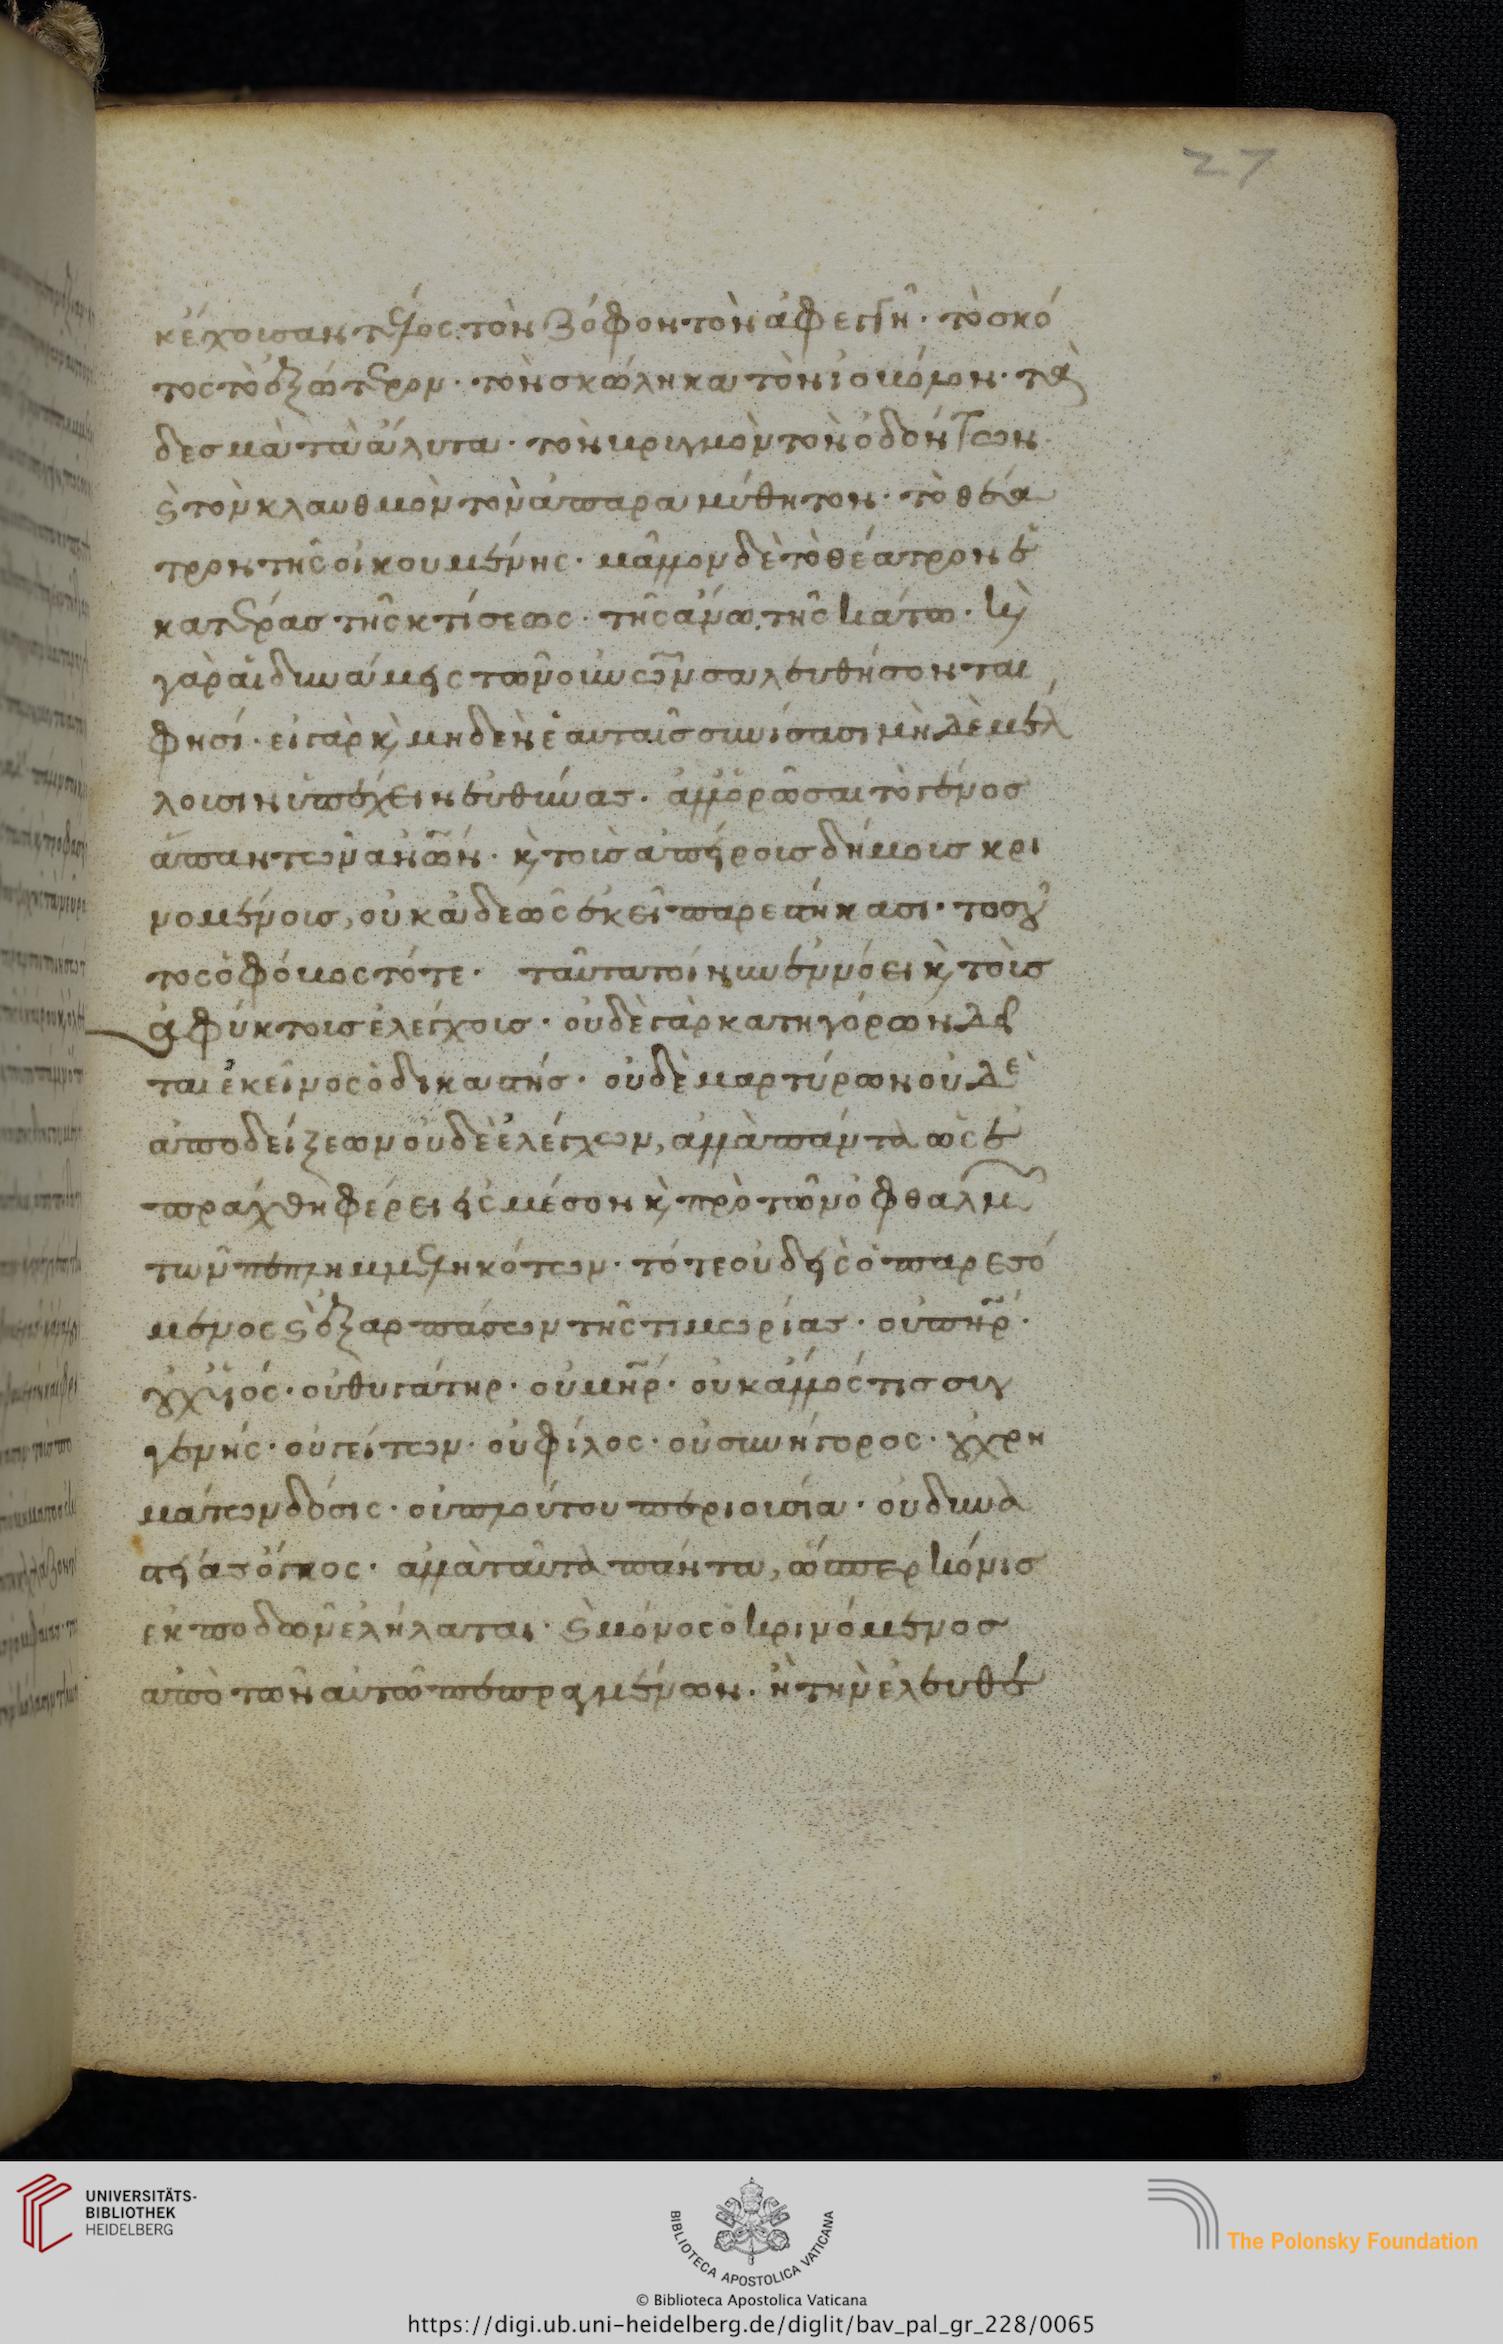 27
κ ἔχοισαν τέλος. τὸν ζόφον τὸν ἀφεγγῆ · τὸ σκό
τος τὸ ἐξώτερον · τὸν σκώληκα τὸν ἰοβόλον · τὰ
δεσμὰ τὰ ἄλυτα · τὸν βριγμὸν τὸν ὀδόντων
ϗ τὸν κλαυθμὸν τὸν ἀπαραμύθητον · τὸ θέα
τρον τῆς οἰκουμένης · μᾶλλον δὲ τὸ θέατρον ἑ
κατέρας τῆς κτίσεως · τῆς ἄνω. τῆς κάτω · ϗ
γὰρ αἱ δυνάμεις τῶν οὐνῶν σαλευθήσονται
φησί · εἰ γὰρ ϗ μηδὲν ἑαυταῖς συνίσασι μὴ δὲ μέλ
λοισιν ὑπέχειν εὐθύνας · ἀλλ ὁρῶσαι τὸ γένος
ἅπαντων ἀνῶν · ϗ τοῖς ἀπείροις δήμοις κρι
νομένοις, οὐκ ἀδεῶς ἐκεῖ παρεστήκασι · τοσοῦ
τος ὁ φόβος τότε · ταῦτα τοίνυν ἐννόει ϗ τοῖς
ἀφύκτοις ἐλέγχοις · οὐδὲ γὰρ κατηγόρων δεῖ
ται ἐκεῖνος ὁ δικαστής · οὐδὲ μαρτύρων οὐδὲ
ἀποδείξεων οὐδὲ ἐλέγχων, ἀλλὰ πάντα ὡς ἐ
πράχθη φέρει εἰς μέσον ϗ πρὸ τῶν ὀφθαλμῶν
τῶν πεπλημμεληκότων · τότε οὐδεὶς ὁ παρεσό
μενος ϗ ἐξαρπάσων τῆς τιμωρίας · οὐ πῆρ ·
οὐχ υἱός · οὐ θυγάτηρ · οὐ μῆρ · οὐκ ἄλλός τις συγ
γενής · οὐ γείτων · οὐ φίλος · οὐ συνήγορος · οὐ χρη
μάτων δόσις · οὐ πλούτου περιουσία · οὐ δυνα
στείας ὄγκος · ἀλλὰ ταῦτα πάντα, ὥσπερ κόνις
ἐκ ποδῶν ἐλήλαται · ϗ μόνος ὁ κρινόμενος
ἀπὸ τῶν αὐτῶ πεπραγμένων · ἢ τὴν ἐλευθέ
UNIVERSITÄTS-
BIBLIOTHEK
HEIDELBERG
BIBLIOTECA APOSTOLICA VATICANA
The Polonsky Foundation
© Biblioteca Apostolica Vaticana
https://digi.ub.uni-heidelberg.de/diglit/bav_pal_gr_228/0065